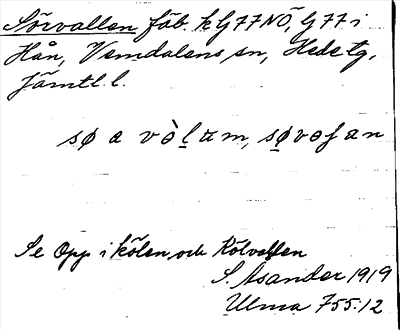 Sörvallen fäb. k G77NÖ, G77 i
Hån, Vemdalens sn, Hede tg,
Jämtl. l.
Se Opp i kölen och Kölvallen
S. Åsander 1919
Ulma 755:12